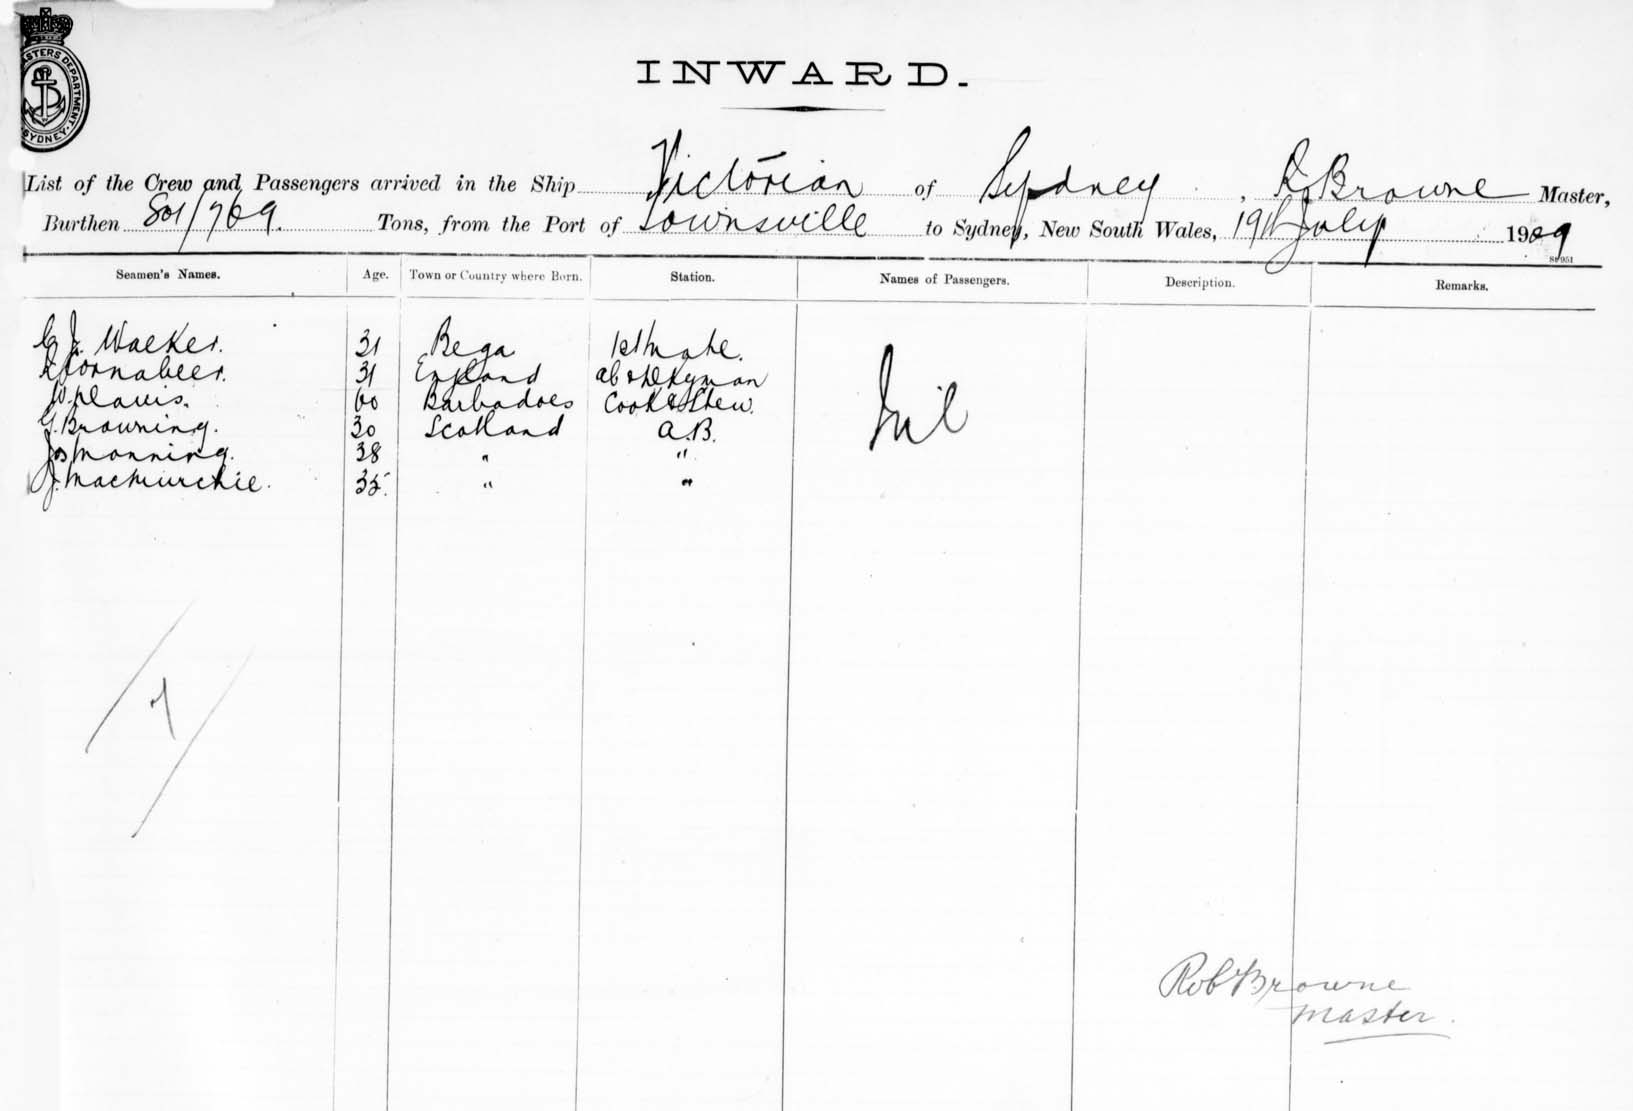 ASTERS DEPARTMENT. SYDNEY.
INWARD.
List of the Crew and Passengers arrived in the Ship Victorian of Sydney, R Browne Master,
Burthen 801/769. Tons, from the Port of Townsville to Sydney, New South Wales, 19th July 1909
Seamen's Names. Age. Town or Country where Born. Station. Names of Passengers. Description. Remarks.
Walker. 31 Bega 1st Mate. Nil
R Cornabeer. 31 England
W. Davis. 60 Barbadoes Cook & Stew.
G. Browning. 30 Scotland A.B.
Jos Manning. 38 " "
J. MacMurchie. 35. " "
7
Robt Browne
Master.